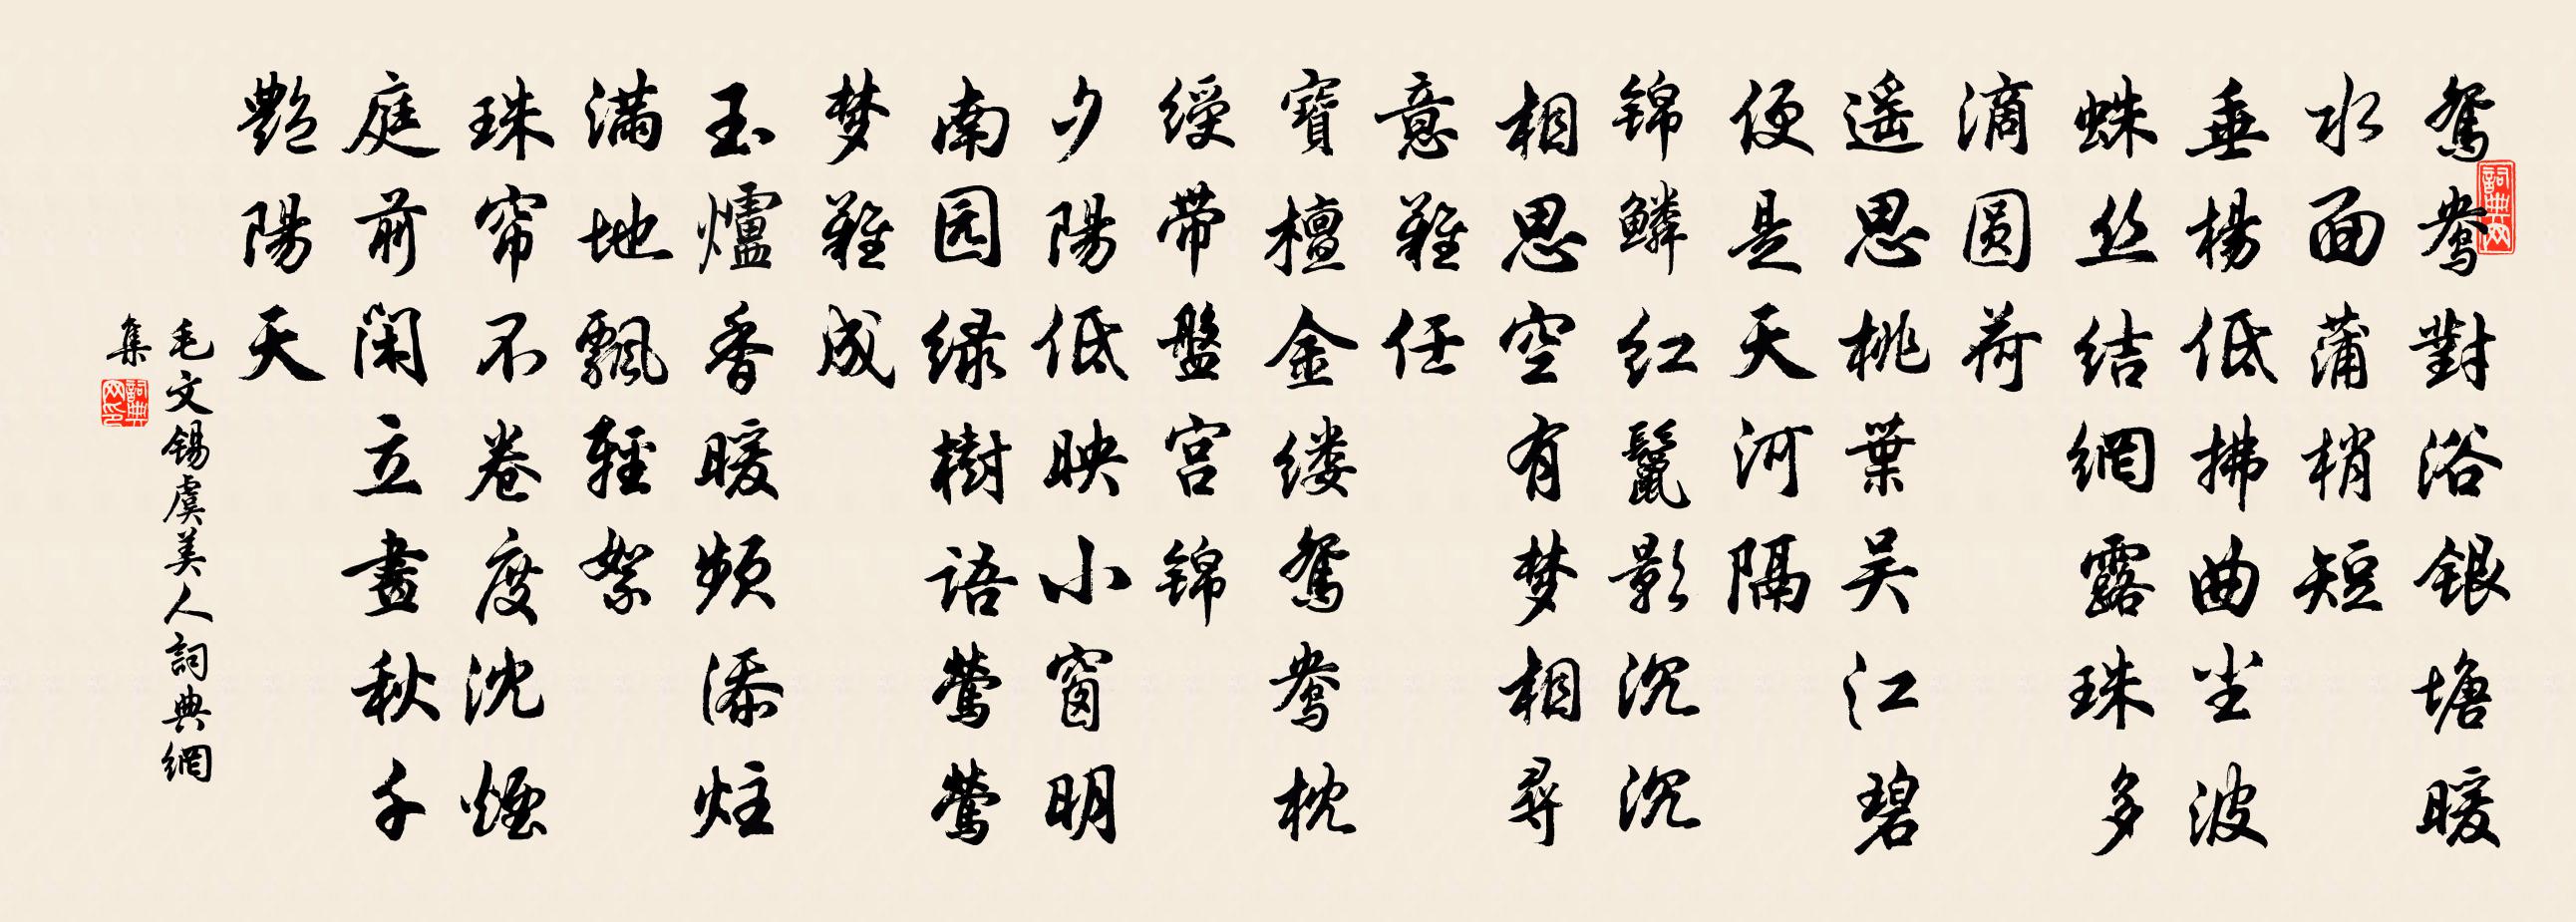 鴛鴦對浴銀塘暖
水面蒲梢短
垂楊低拂曲尘波
蛛丝结網露珠多
滴圆荷
遥思桃葉吴江碧
便是天河隔
锦鳞红鬣影沉沉
相思空有梦相尋
意難任
寶檀金缕鴛鴦枕
绶带盤宫锦
夕陽低映小窗明
南园绿樹語鶯鶯
梦難成
玉爐香暖頻添炷
满地飄輕絮
珠帘不卷度沈煙
庭前闲立畫秋千
艷陽天
毛文锡虞美人詞典網
集
詞典网
詞典网印